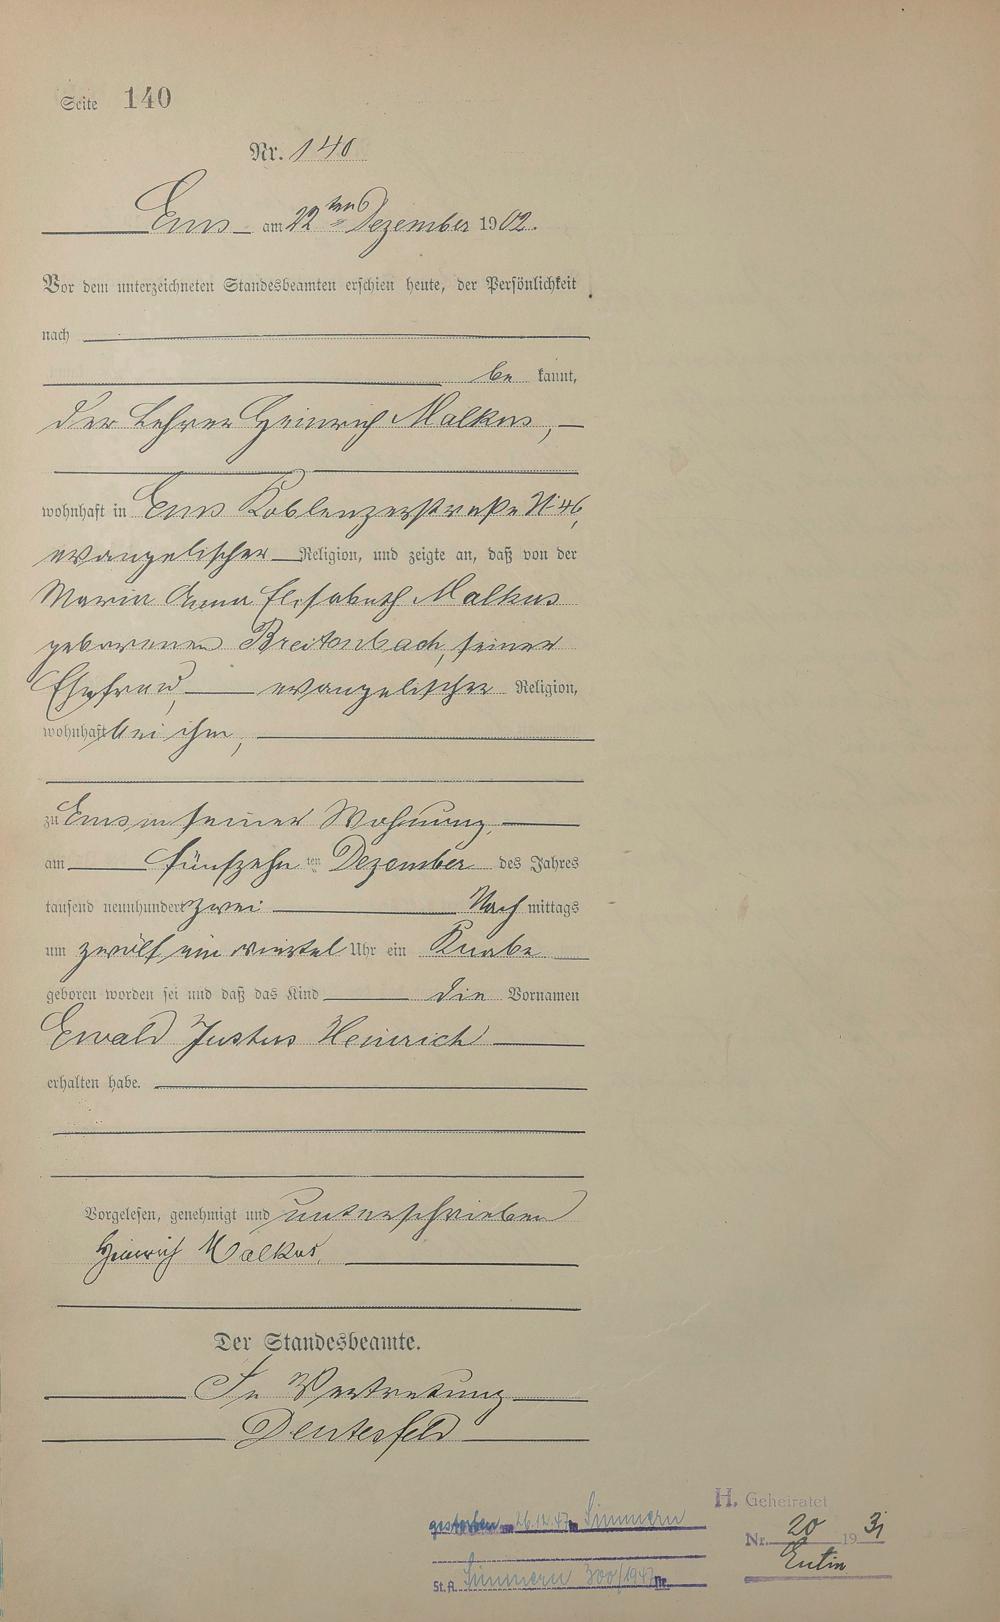 Seite 140
Nr. 140
Ems am 22ten Dezember 1902.
Vor dem unterzeichneten Standesbeamten erschien heute, der Persönlichkeit
nach
be kannt,
der Lehrer Heinrich Malkus,
wohnhaft in Ems Koblenzerstraße N: 46,
evangelischer Religion, und zeigte an, daß von der
Maria Anna Elisabeth Malkus
geborenen Breitenbach, seiner
Ehefrau, evangelischer Religion,
wohnhaft bei ihm,
zu Ems in seiner Wohnung,
am fünfzehn ten Dezember des Jahres
tausend neunhundert zwei Nach mittags
um zwölf ein viertel Uhr ein Knabe
geboren worden sei und daß das Kind die Vornamen
Ewald Justus Heinrich
erhalten habe.
Vorgelesen, genehmigt und unterschrieben
Heinrich Malkus.
Der Standesbeamte.
In Vertretung
Deutesfeld
H. Geheiratet
gestorben am 26.12.47 in Simmern
Nr. 20 1931
Eutin
St.A. Simmern 300/1947 Nr.